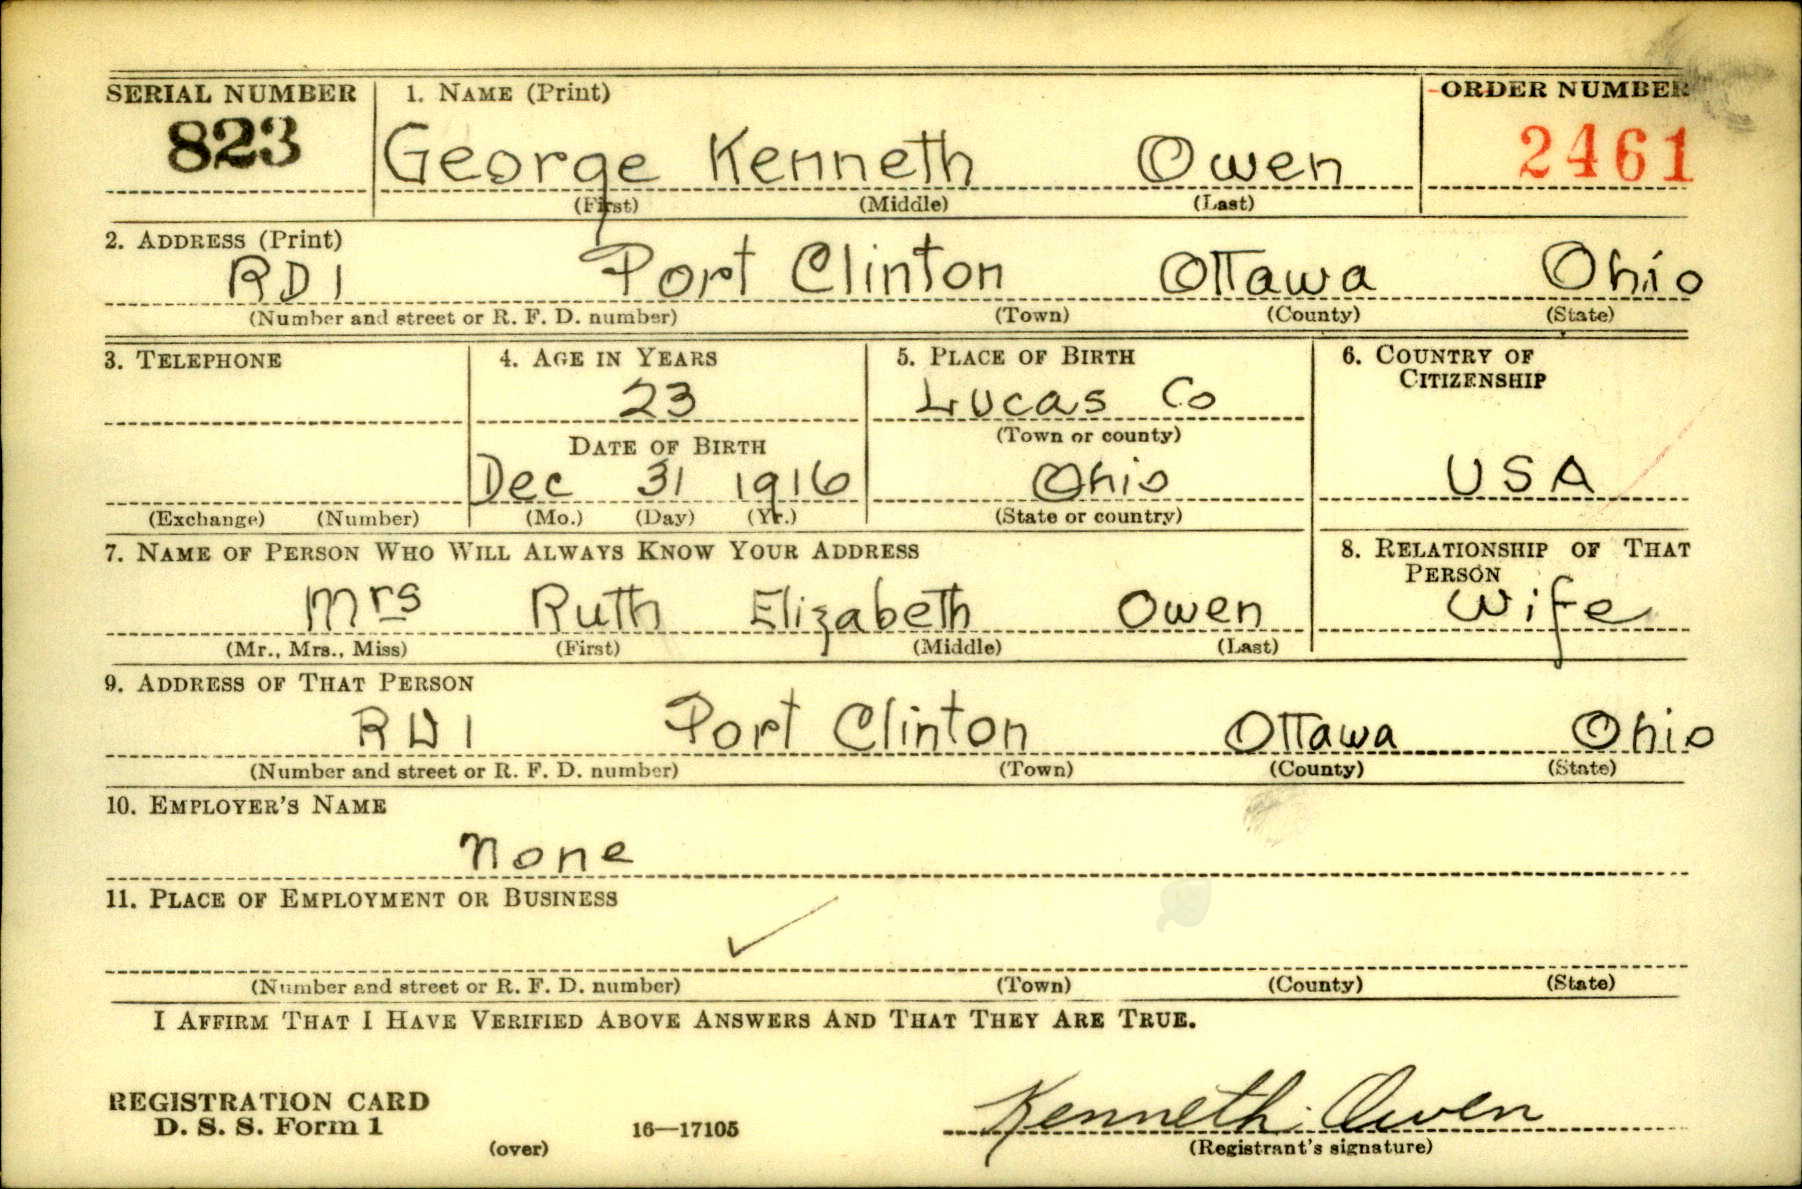 SERIAL NUMBER 1. NAME (Print) ORDER NUMBER
823 George Kenneth Owen 2461
(First) (Middle) (Last)
2. ADDRESS (Print)
RD 1 Port Clinton Ottawa Ohio
(Number and street or R. F. D. number) (Town) (County) (State)
3. TELEPHONE 4. AGE IN YEARS 5. PLACE OF BIRTH 6. COUNTRY OF
CITIZENSHIP
23 Lucas Co
DATE OF BIRTH (Town or county)
Dec 31 1916 Ohio USA
(Exchange) (Number) (Mo.) (Day) (Yr.) (State or country)
7. NAME OF PERSON WHO WILL ALWAYS KNOW YOUR ADDRESS 8. RELATIONSHIP OF THAT
PERSON
Mrs Ruth Elizabeth Owen Wife
(Mr., Mrs., Miss) (First) (Middle) (Last)
9. ADDRESS OF THAT PERSON
RD 1 Port Clinton Ottawa Ohio
(Number and street or R. F. D. number) (Town) (County) (State)
10. EMPLOYER'S NAME
None
11. PLACE OF EMPLOYMENT OR BUSINESS
(Number and street or R. F. D. number) (Town) (County) (State)
I AFFIRM THAT I HAVE VERIFIED ABOVE ANSWERS AND THAT THEY ARE TRUE.
REGISTRATION CARD
D. S. S. Form 1 16—17105 Kenneth Owen
(over) (Registrant's signature)